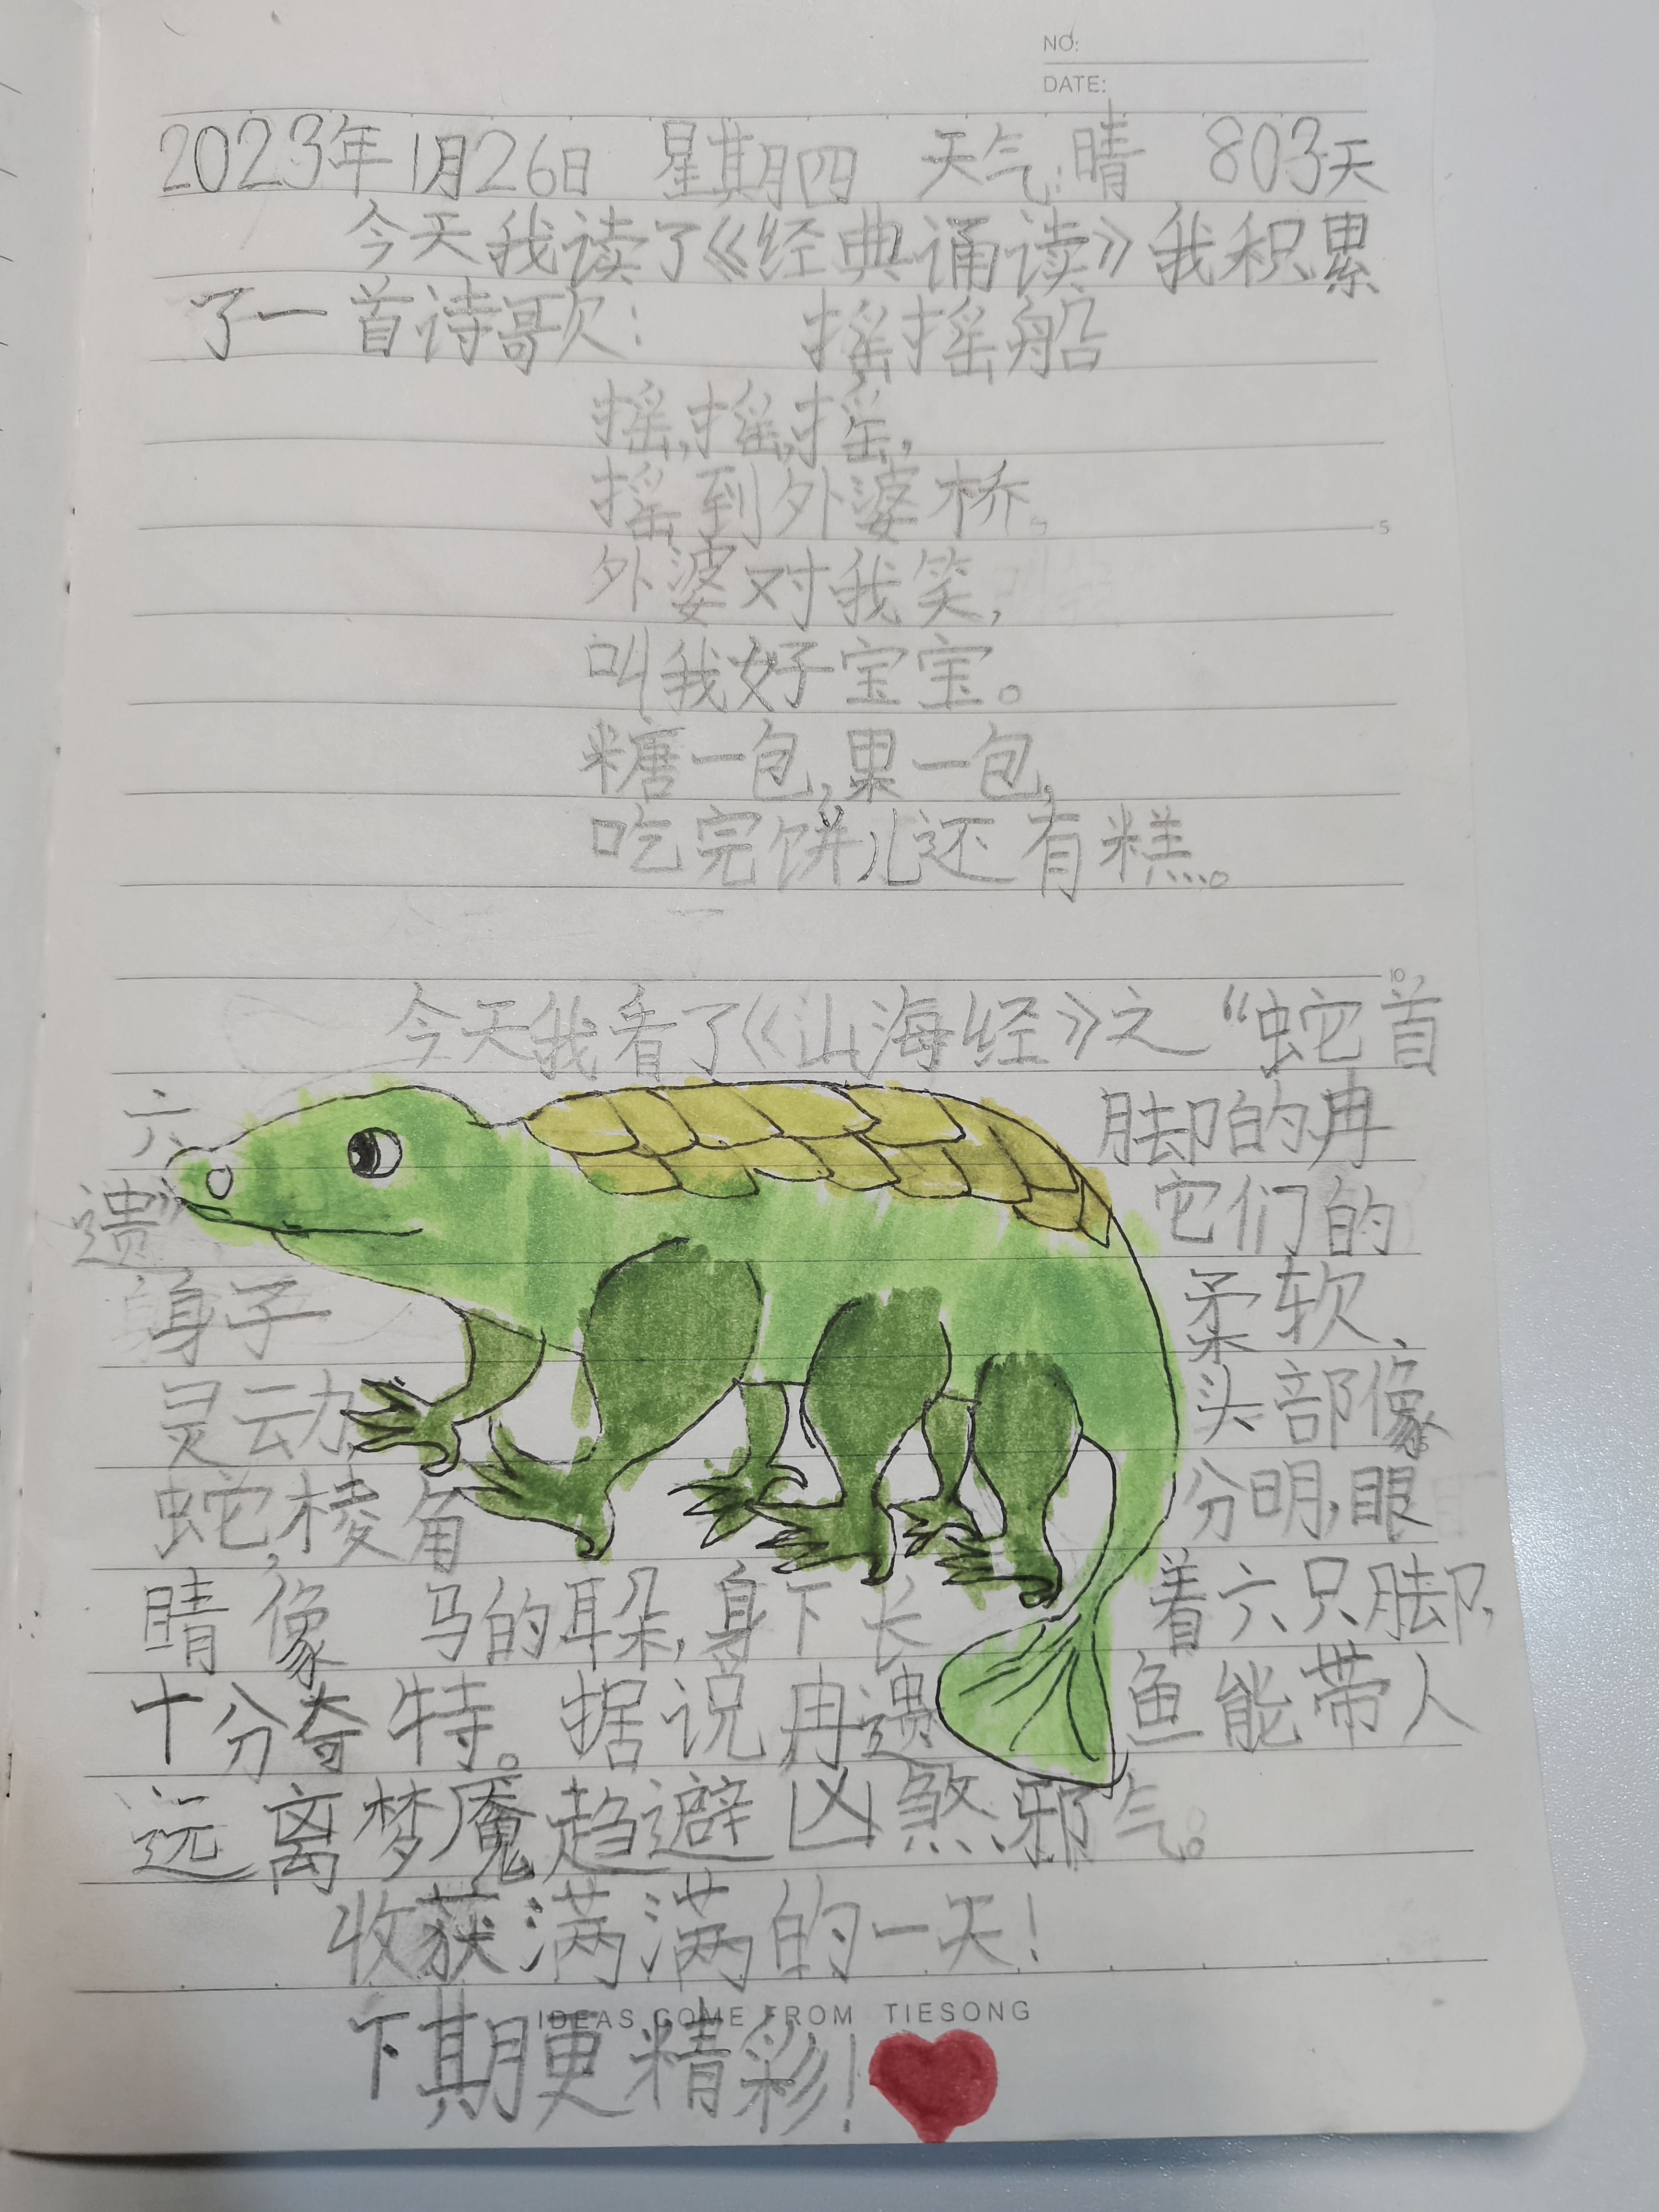 NO:
DATE:
2023年1月26日 星期四 天气:晴 803天
今天我读了《经典诵读》我积累
了一首诗歌: 摇摇船
摇,摇,摇,
摇到外婆桥。
外婆对我笑,
叫我好宝宝。
糖一包,果一包,
吃完饼儿还有糕。
5
10
今天我看了《山海经》之“蛇首
六脚的冉
遗”它们的
身子柔软、
灵动,头部像
蛇,棱角分明,眼
睛像马的耳朵,身下长着六只脚,
十分奇特。据说冉遗鱼能带人
远离梦魇趋避凶煞邪气。
收获满满的一天!
IDEAS COME FROM TIESONG
下期更精彩!